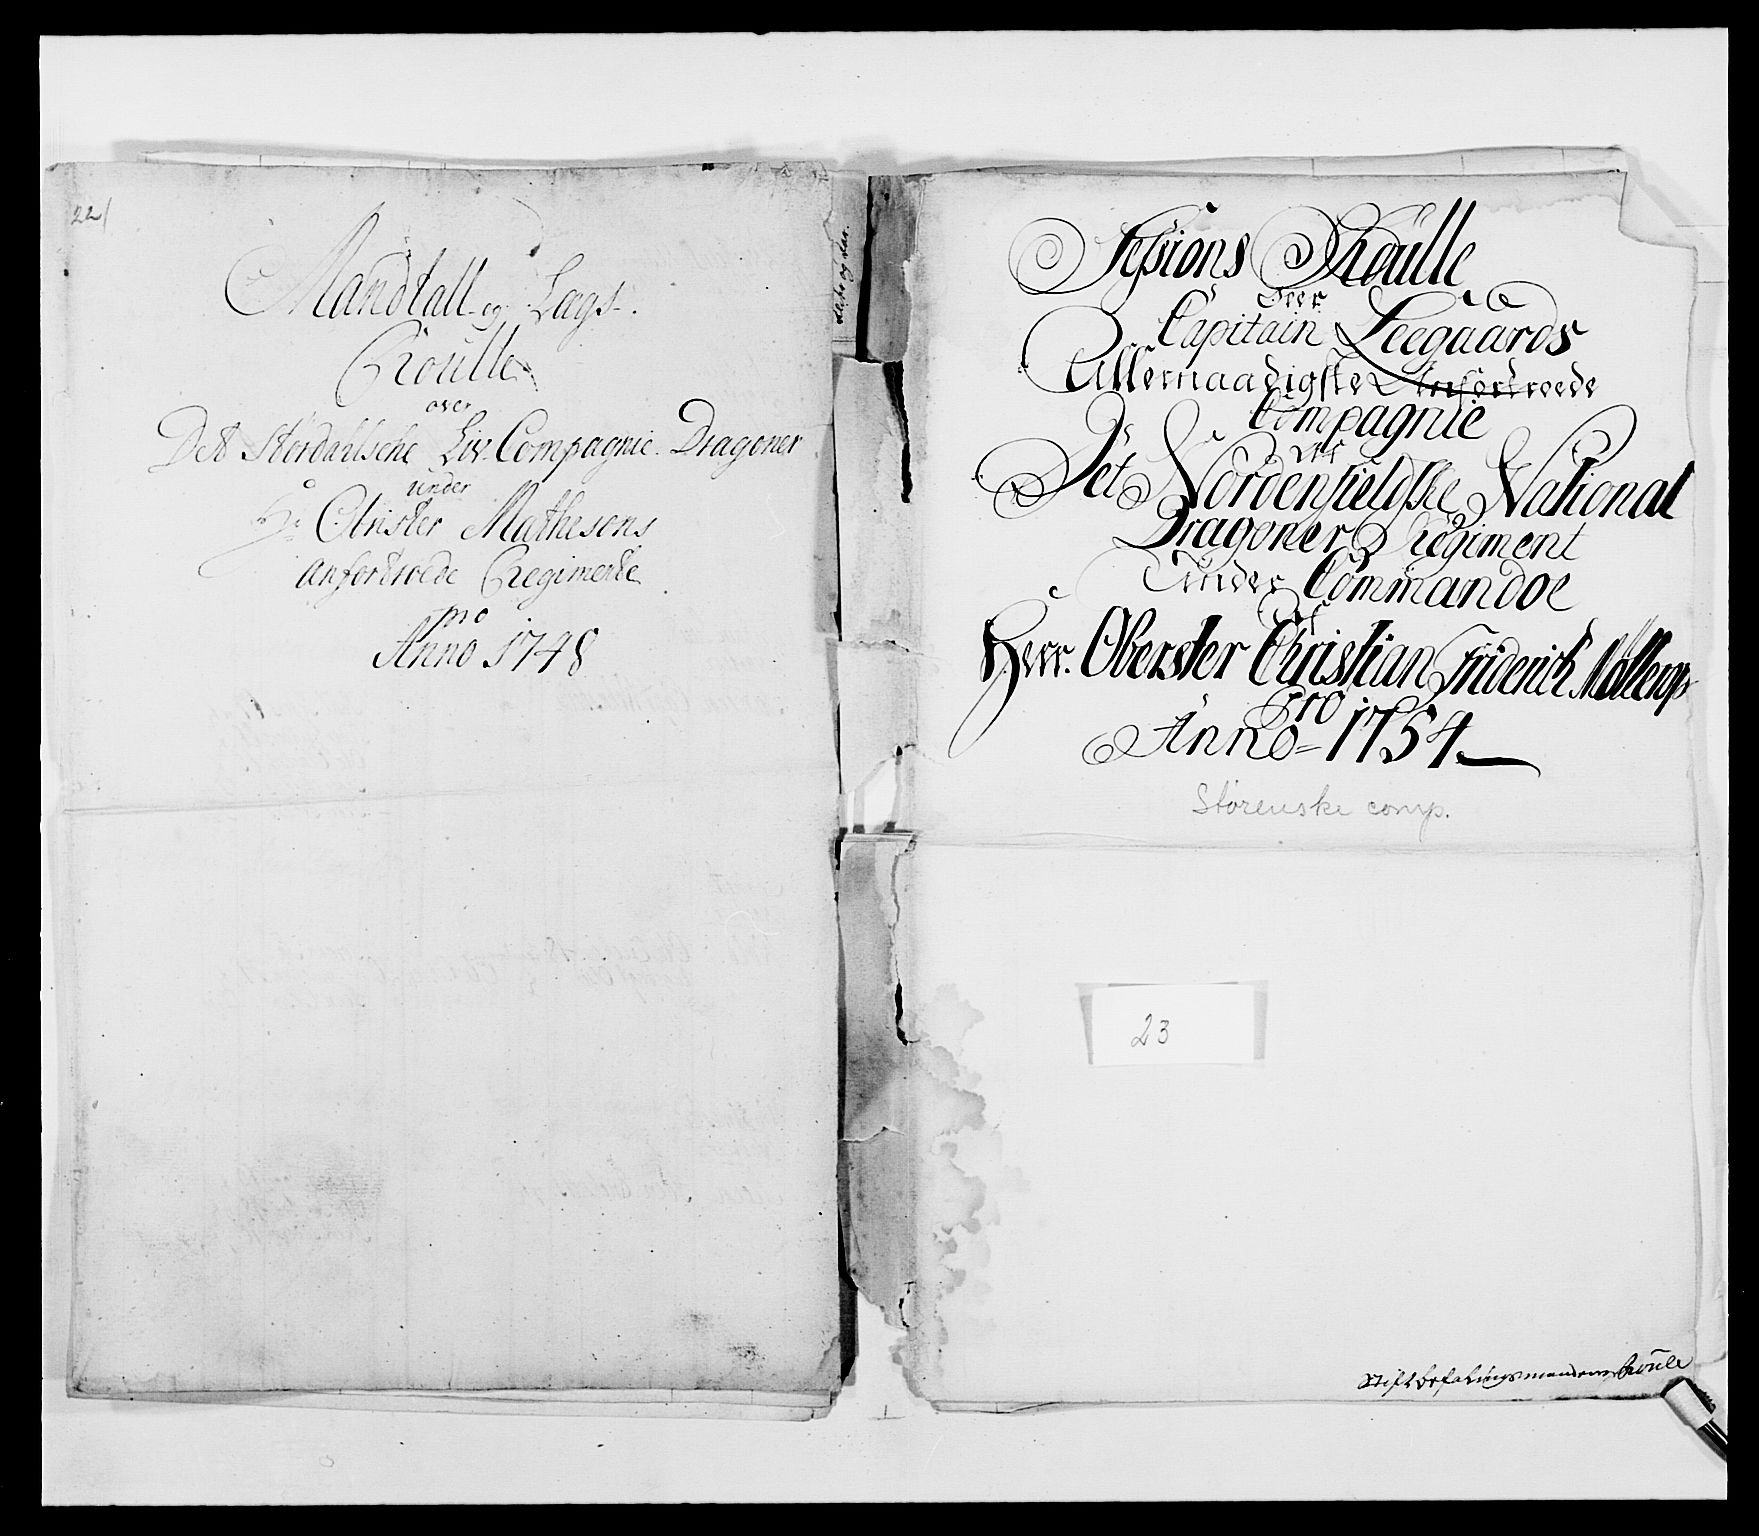 221
Mandtall og Lægs
Roulle
over
Det Størdahlsche Liv Compagnie Dragoner
under
Hr Obrister Mathesons
anfortroede Regimente
pro
Anno 1748
Sessions Roulle
over
Capitain Leegaards
Allernaadigste Anfortroede
Compagnie
Det Nordenfieldske National
Dragoner Regiment
Under Commandoe
af
Herr. Oberster Christian Friderich Møllerop
pro
Anno = 1754
Størenske comp.
23
Stiftbefalingsmandens Roule